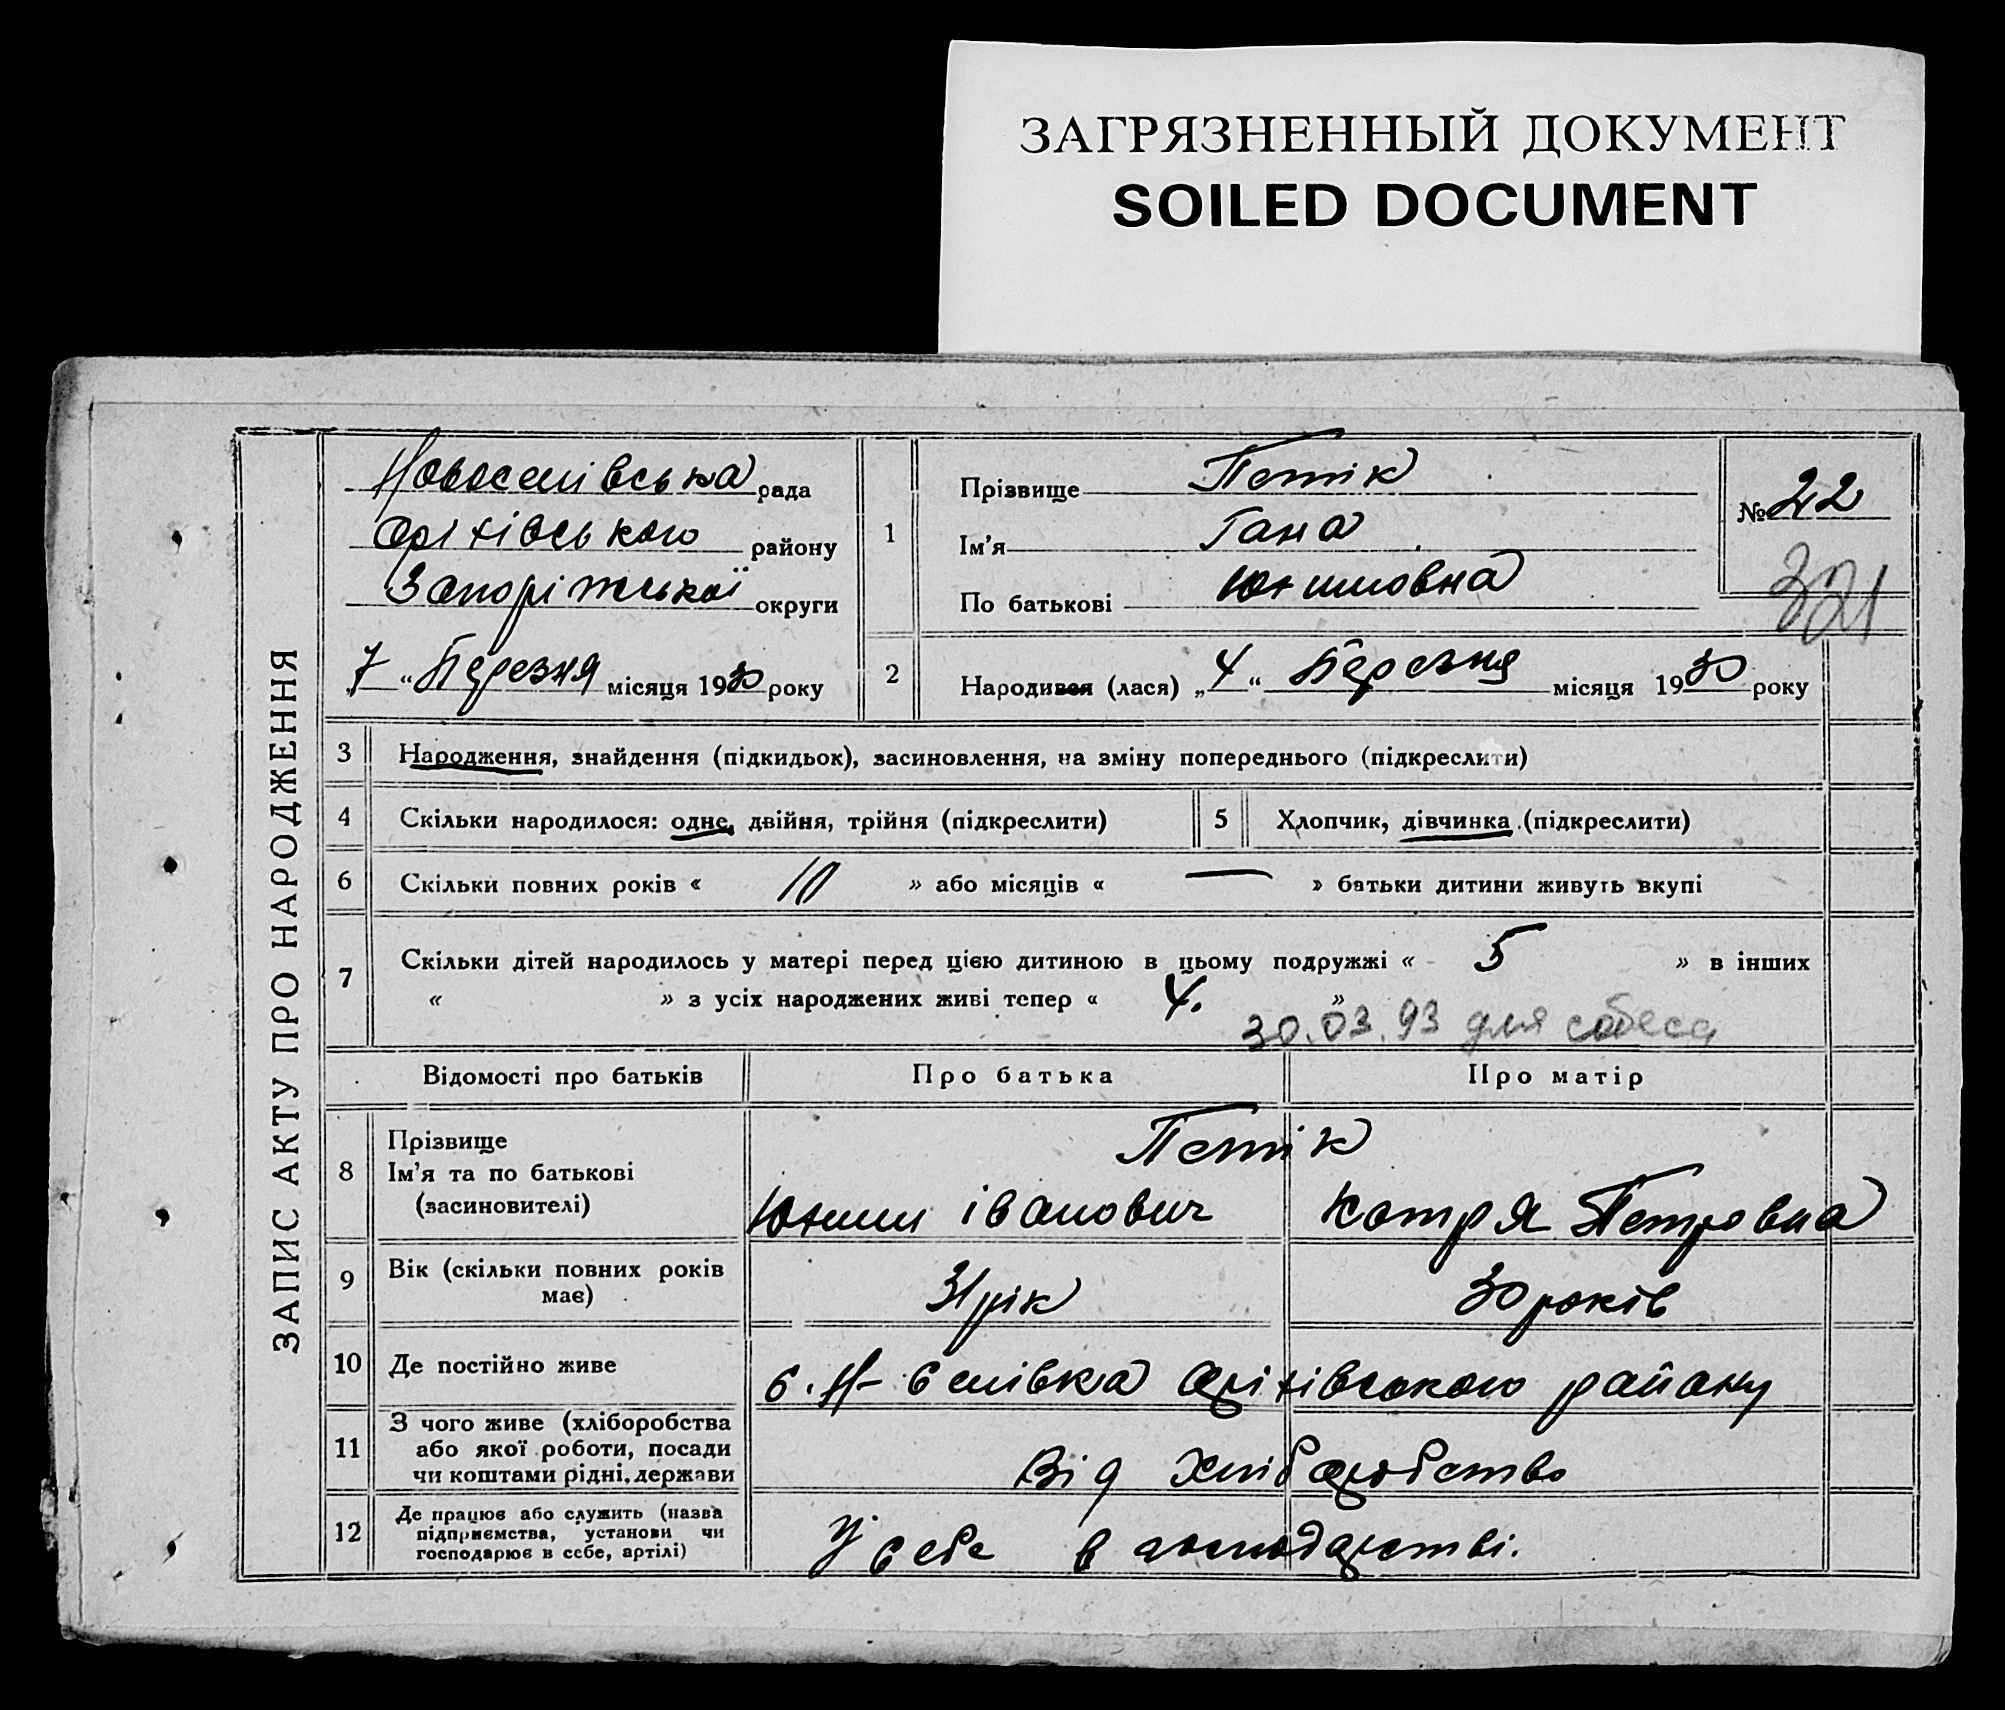 ЗАГРЯЗНЕННЫЙ ДОКУМЕНТ
SOILED DOCUMENT
ЗАПИС АКТУ ПРО НАРОДЖЕННЯ
Новоселівська рада
Оріхівського району
Запоріжської округи
„7“ Березня місяця 1930 року
1
Прізвище Петік
Ім'я Гана
По батькові Юхимовна
№ 22
321
2
Народився (лася) „4“ Березня місяця 1930 року
3 Народження, знайдення (підкидьок), засиновлення, на зміну попереднього (підкреслити)
4 Скільки народилося: одне, двійня, трійня (підкреслити) 5 Хлопчик, дівчинка (підкреслити)
6 Скільки повних років « 10 » або місяців « — » батьки дитини живуть вкупі
7 Скільки дітей народилось у матері перед цією дитиною в цьому подружжі « 5 » в інших
« » з усіх народжених живі тепер « 4. »
30.03.93 для собеса
Відомості про батьків Про батька Про матір
8 Прізвище Петік
Ім'я та по батькові
(засиновителі) Юхим Іванович Котря Петровна
9 Вік (скільки повних років
має) 31 рік 30 років
10 Де постійно живе с. Н-Селівка Оріхівського району
11 З чого живе (хліборобства
або якої роботи, посади
чи коштами рідні, держави Від хліборобство
12 Де працює або служить (назва
підприємства, установи чи
господарює в себе, артілі) У себе в господарстві.